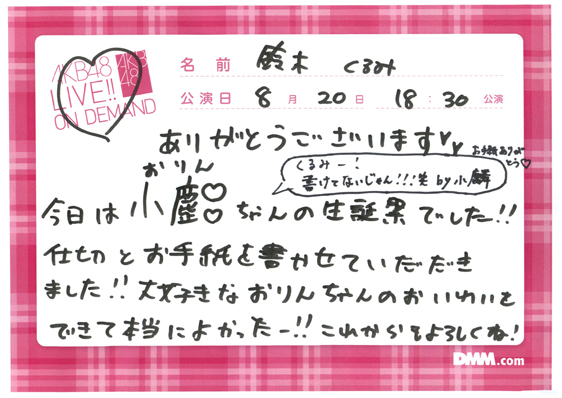 AKB48
LIVE!!
ON DEMAND
AKB
48
名前 鈴木 くるみ
公演日 8月20日 18:30公演
ありがとうございます♡♡
お手紙ありが
とう♡
くるみー!
書けてないじゃん!!!笑 by 小麟
おりん
今日は小麈♡♡ちゃんの生誕祭でした!!
仕切とお手紙を書かせていただき
ました!! 大好きなおりんちゃんのおいわいを
できて本当によかったー!! これからもよろしくね!
DMM.com